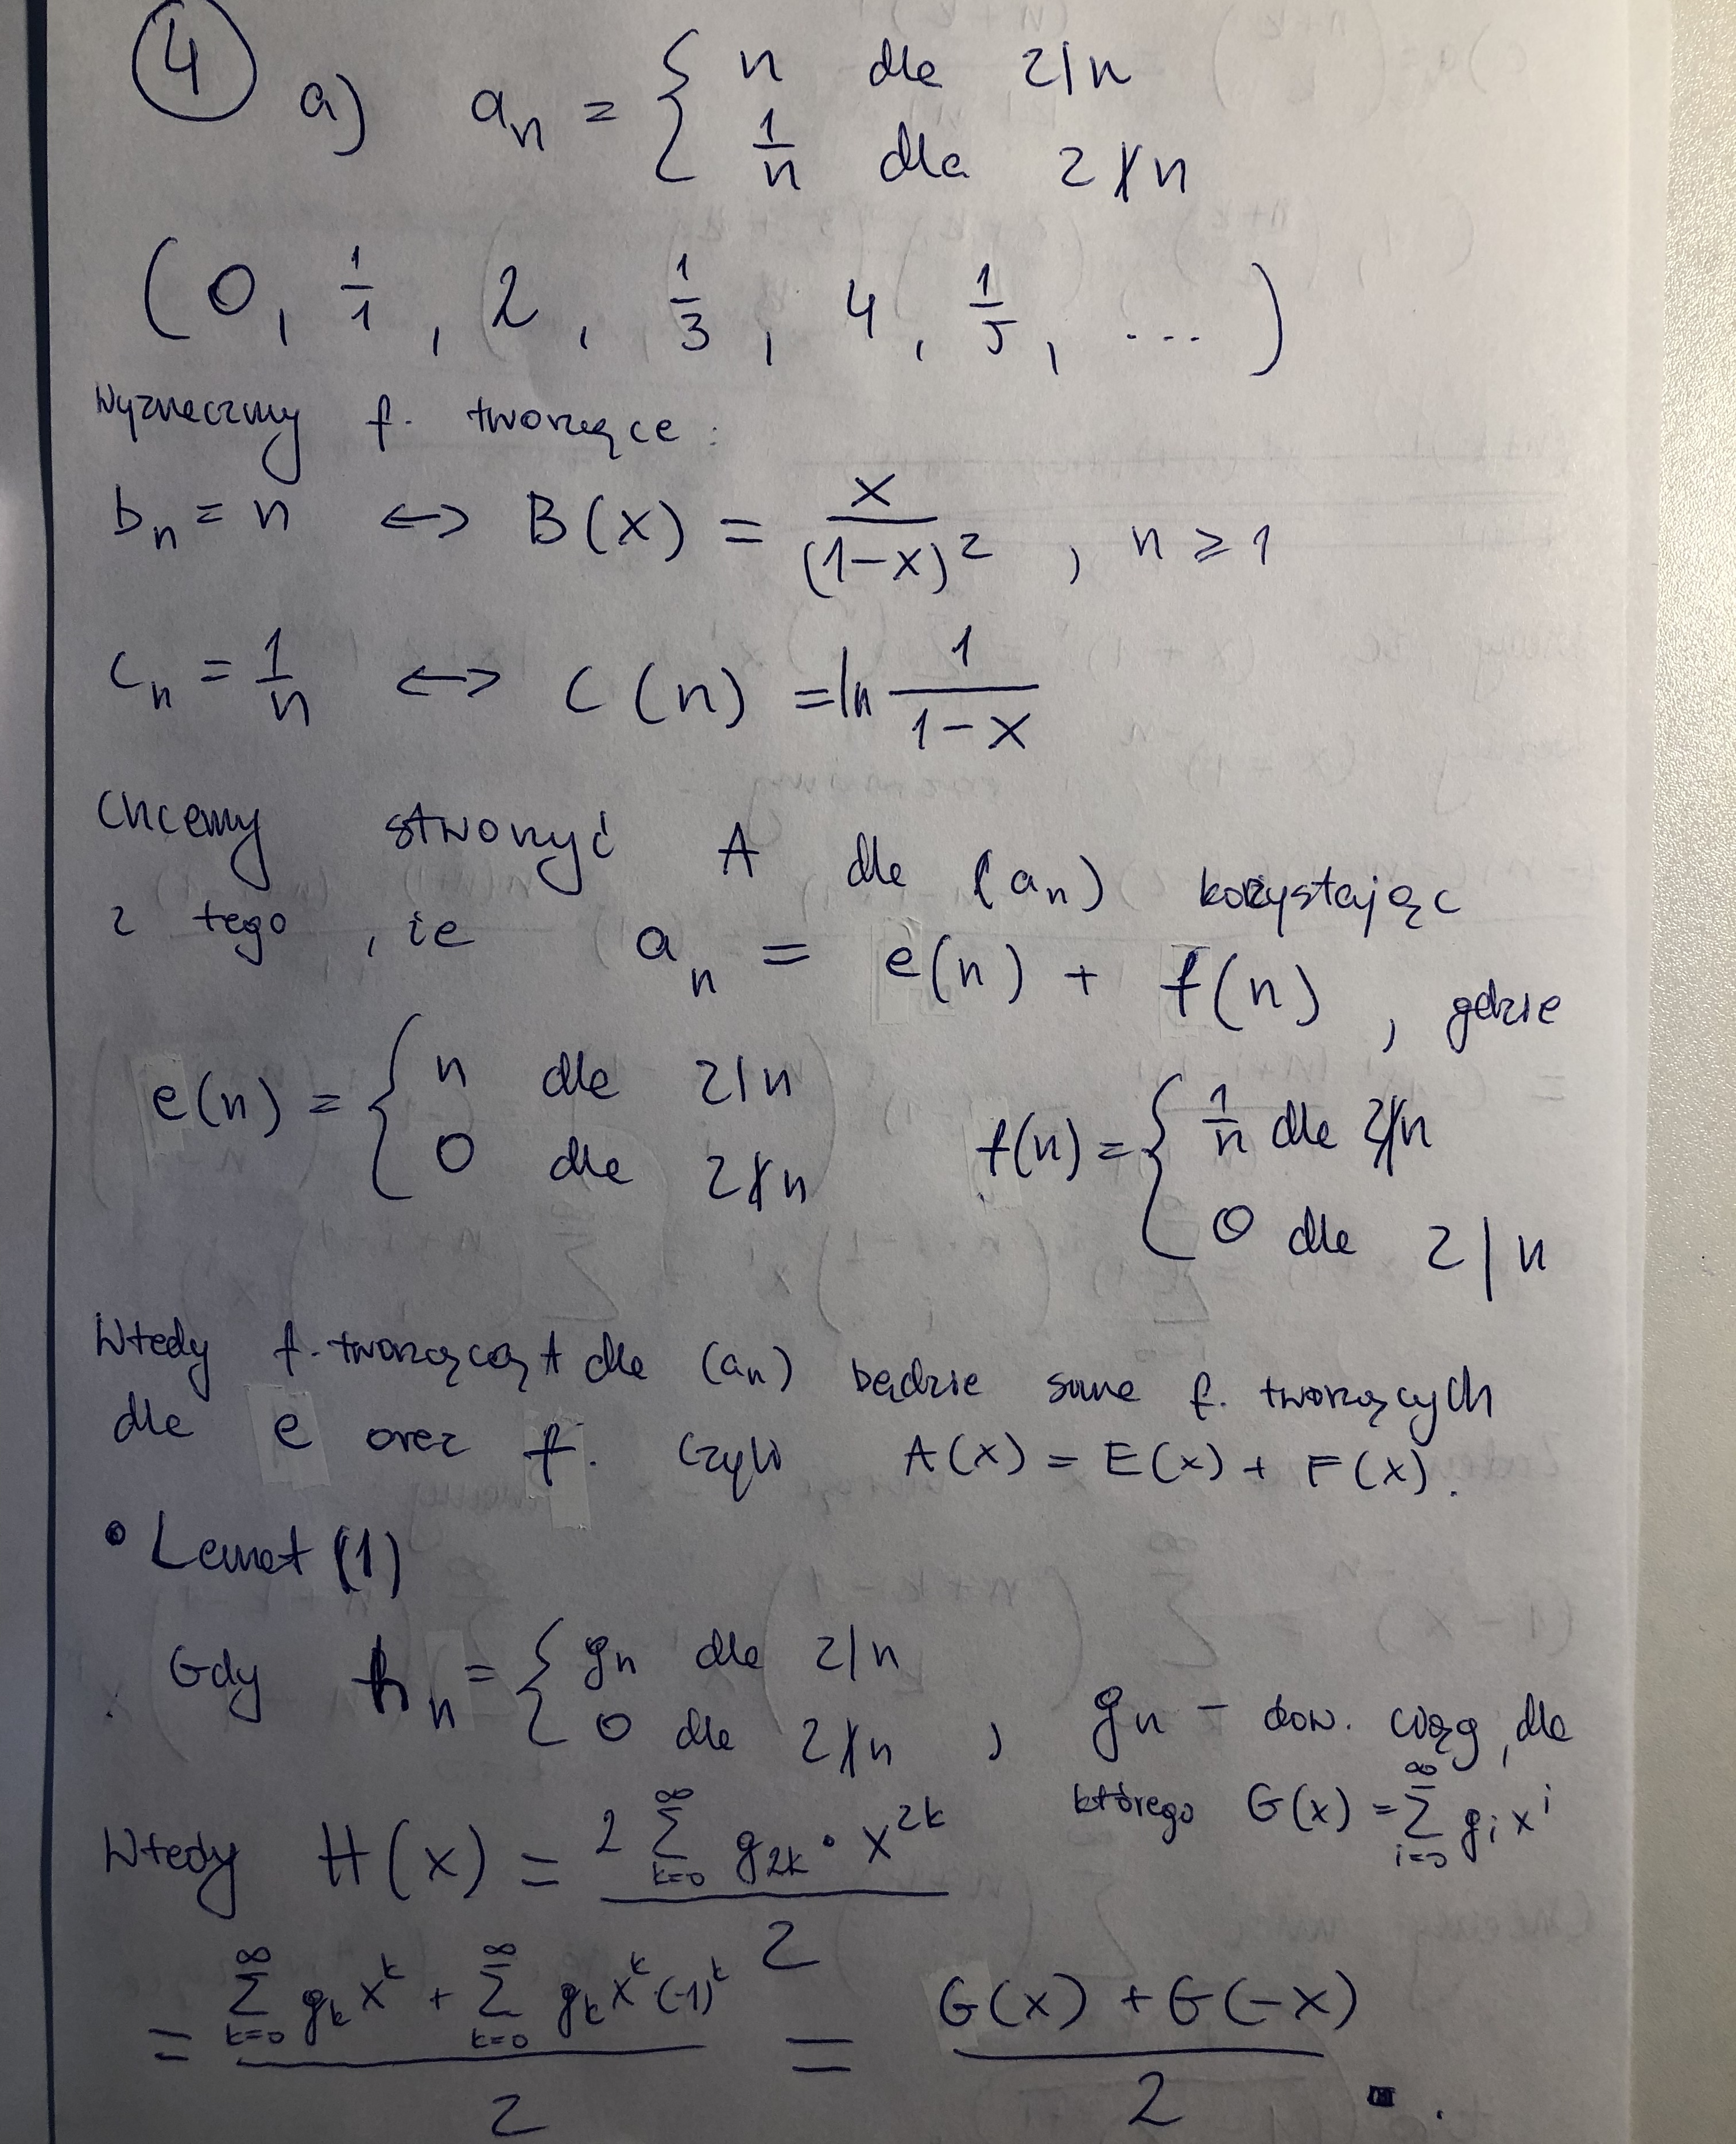 ④ a) aₙ = { n dla 2|n
1/n dla 2∤n
(0, 1/1, 2, 1/3, 4, 1/5, ...)
Wyznaczmy f. tworzące:
bₙ = n ↔ B(x) = x/(1-x)², n ≥ 1
cₙ = 1/n ↔ C(n) = ln 1/(1-x)
Chcemy stworzyć A dla (aₙ) korzystając
z tego, że aₙ = e(n) + f(n), gdzie
e(n) = { n dla 2|n
0 dla 2∤n
f(n) = { 1/n dla 2∤n
0 dla 2|n
Wtedy f. tworzącą A dla (aₙ) będzie suma f. tworzących
dla e oraz f. Czyli A(x) = E(x) + F(x).
• Lemat (1)
Gdy hₙ = { gₙ dla 2|n
0 dla 2∤n , gₙ - dow. ciąg, dla
którego G(x) = ∑_{i=0}^{∞} gᵢxⁱ
Wtedy H(x) = (2 ∑_{k=0}^{∞} g₂ₖ · x^{2k})/2
= (∑_{k=0}^{∞} gₖxᵏ + ∑_{k=0}^{∞} gₖxᵏ(-1)ᵏ)/2 = (G(x) + G(-x))/2 ■.